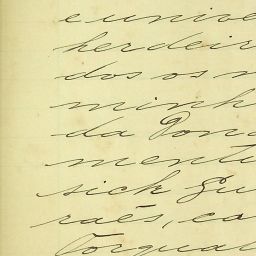 e unive
herdeir
dos os m
minh
da Pon
ment
sick Gu
raēs, co
Torquat